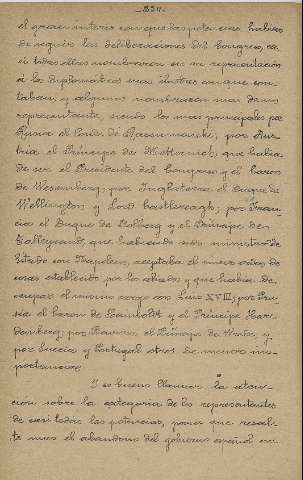 -234-
el gran interés con que las potencias habían
de seguir las deliberaciones del Congreso, ca-
si todas ellas nombraron en su representación
á los diplomáticos mas ilustres con que con-
taban, y algunas nombraron mas de un
representante, siendo los mas principales por
Rusia el Conde de por Aus-
tria, el Príncipe de Metternich, que había
de ser el Presidente del Congreso y el baron
de Wesemberg; por Inglaterra el Duque de
Wellington y Lord Castlereagh; por Fran-
cia el Duque de Dalberg y el Príncipe de
Talleyrand, que habiendo sido ministro de
Estado con Napoleon, aceptaba el nuevo orden de
cosas establecido por los aliados y que había de
ocupar el mismo cargo con Luis XVIII; por Pru-
sia el baron de y el Príncipe Har-
denberg; por Baviera el Príncipe de Wrede, y
por Suecia y Portugal otros de menos im-
portancia.
Y es bueno llamar la aten-
ción sobre la categoría de los representantes
de casi todas las potencias, para que resal-
te mas el abandono del gobierno español en